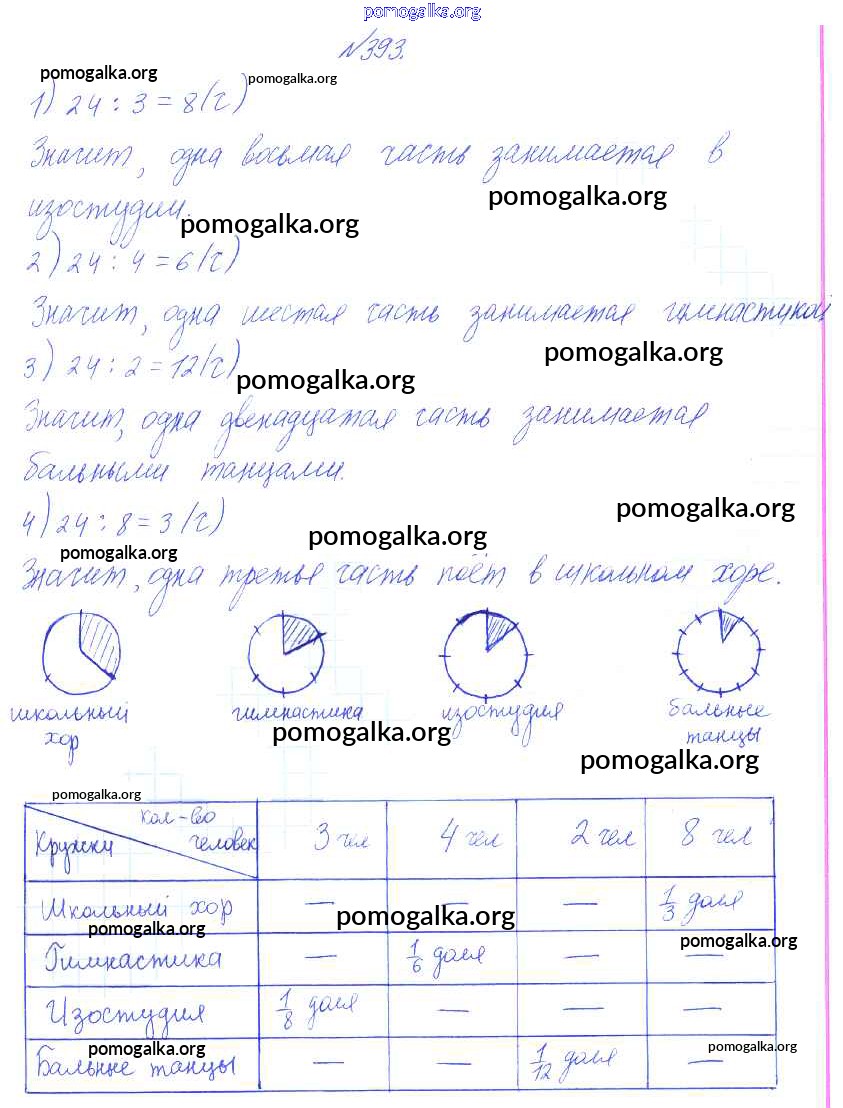 pomogalka.org
№393.
pomogalka.org pomogalka.org
1) 24 : 3 = 8 (ч)
Значит, одна восьмая часть занимается в
pomogalka.org
изостудии.
pomogalka.org
2) 24 : 4 = 6 (ч)
Значит, одна шестая часть занимается гимнастикой
pomogalka.org
3) 24 : 2 = 12 (ч)
pomogalka.org
Значит, одна двенадцатая часть занимается
бальными танцами.
pomogalka.org
4) 24 : 8 = 3 (ч)
pomogalka.org
pomogalka.org
Значит, одна третья часть поёт в школьном хоре.
школьный хор
гимнастика
изостудия
бальные танцы
pomogalka.org
pomogalka.org
pomogalka.org
Кол-во человек
Кружки 3 чел 4 чел 2 чел 8 чел
Школьный хор — — — 1/3 доля
pomogalka.org pomogalka.org pomogalka.org
Гимнастика — 1/6 доля — —
Изостудия 1/8 доля — — —
pomogalka.org pomogalka.org pomogalka.org
Бальные танцы — — 1/12 доля —